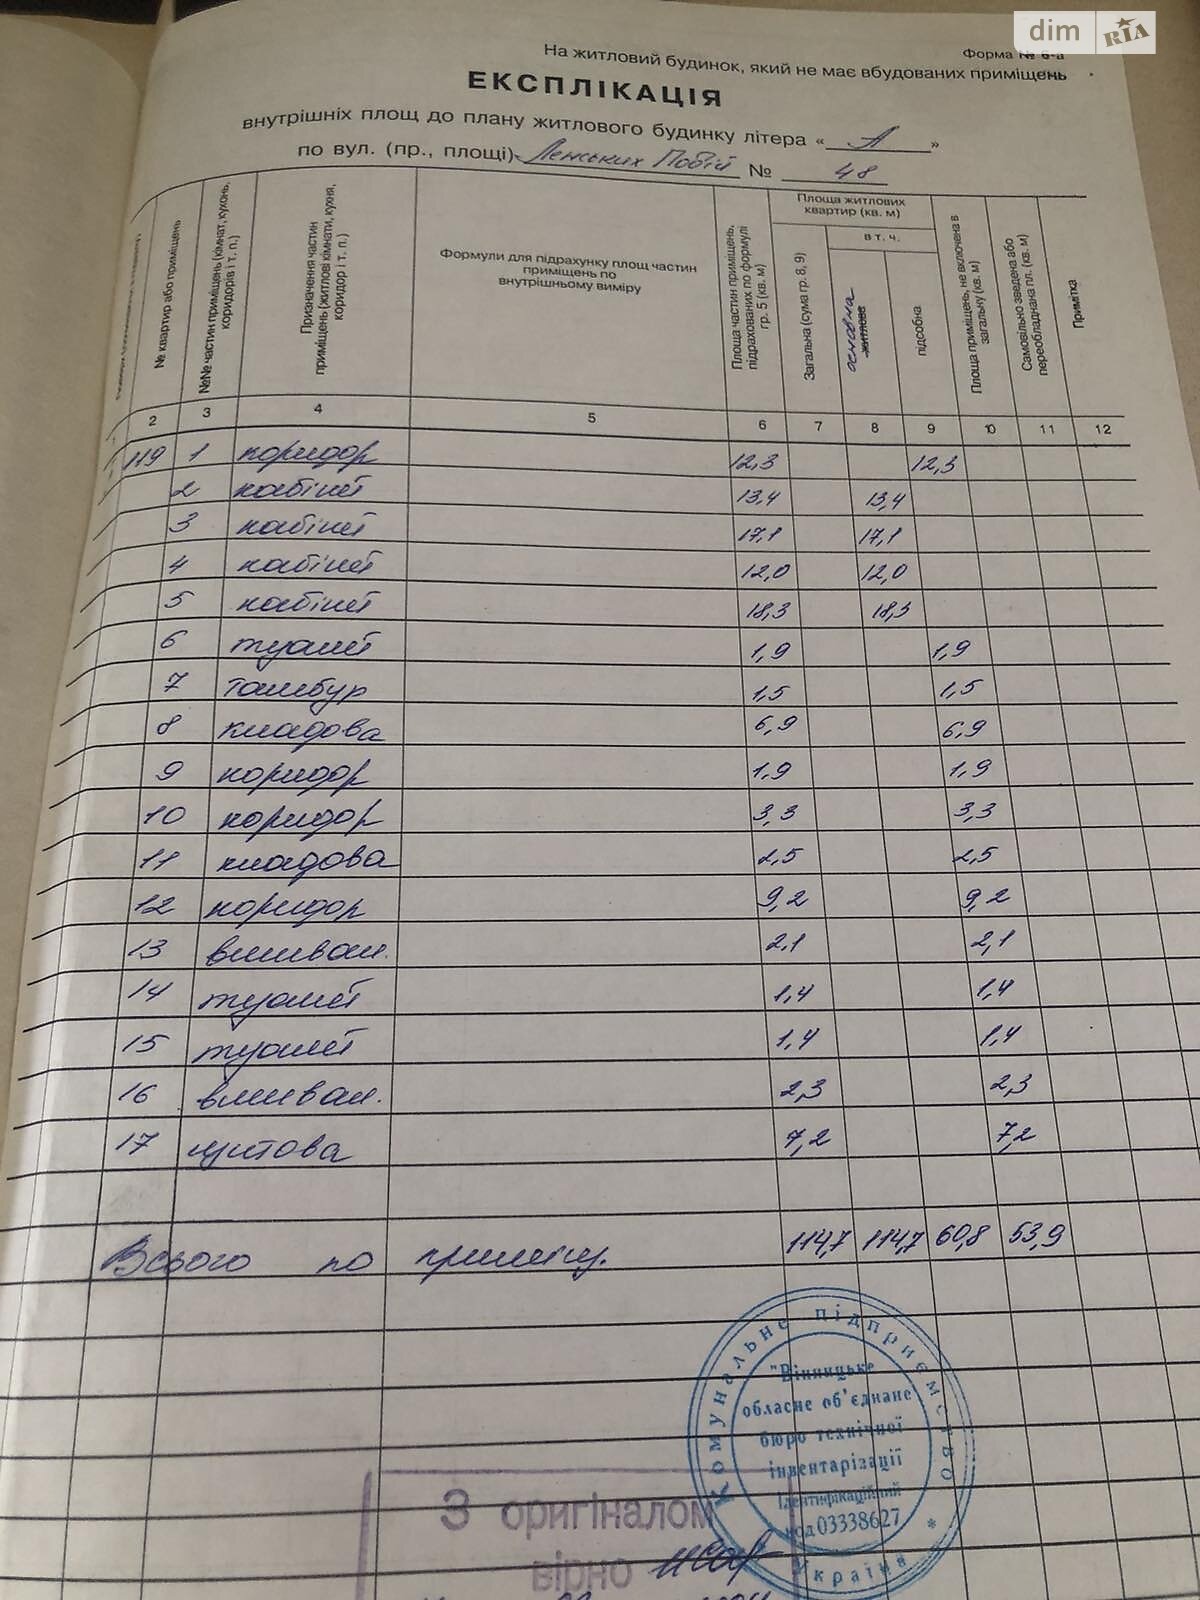 dim RIA
Форма № 6-а
На житловий будинок, який не має вбудованих приміщень
ЕКСПЛІКАЦІЯ
внутрішніх площ до плану житлового будинку літера « А »
по вул. (пр., площі) Ленських Подій № 48
№ квартир або приміщень
№№ частин приміщень (кімнат, кухонь, коридорів і т. п.)
Призначення частин приміщень (житлові кімнати, кухня, коридор і т. п.)
Формули для підрахунку площ частин приміщень по внутрішньому виміру
Площа частин приміщень, підрахованих по формулі гр. 5 (кв. м)
Площа житлових квартир (кв. м)
Загальна (сума гр. 8, 9)
в т. ч.
основна житлова
підсобна
Площа приміщень, не включена в загальну (кв. м)
Самовільно зведена або переобладнана пл. (кв. м)
Примітка
2 3 4 5 6 7 8 9 10 11 12
119 1 коридор 12,3 12,3
2 кабінет 13,4 13,4
3 кабінет 17,1 17,1
4 кабінет 12,0 12,0
5 кабінет 18,3 18,3
6 туалет 1,9 1,9
7 тамбур 1,5 1,5
8 кладова 6,9 6,9
9 коридор 1,9 1,9
10 коридор 3,3 3,3
11 кладова 2,5 2,5
12 коридор 9,2 9,2
13 вмивал. 2,1 2,1
14 туалет 1,4 1,4
15 туалет 1,4 1,4
16 вмивал. 2,3 2,3
17 щитова 7,2 7,2
Всього по приміщ. 114,7 114,7 60,8 53,9
Комунальне підприємство
"Вінницьке
обласне об'єднане
бюро технічної
інвентаризації
Ідентифікаційний
код 03338627
* Україна *
З оригіналом
вірно